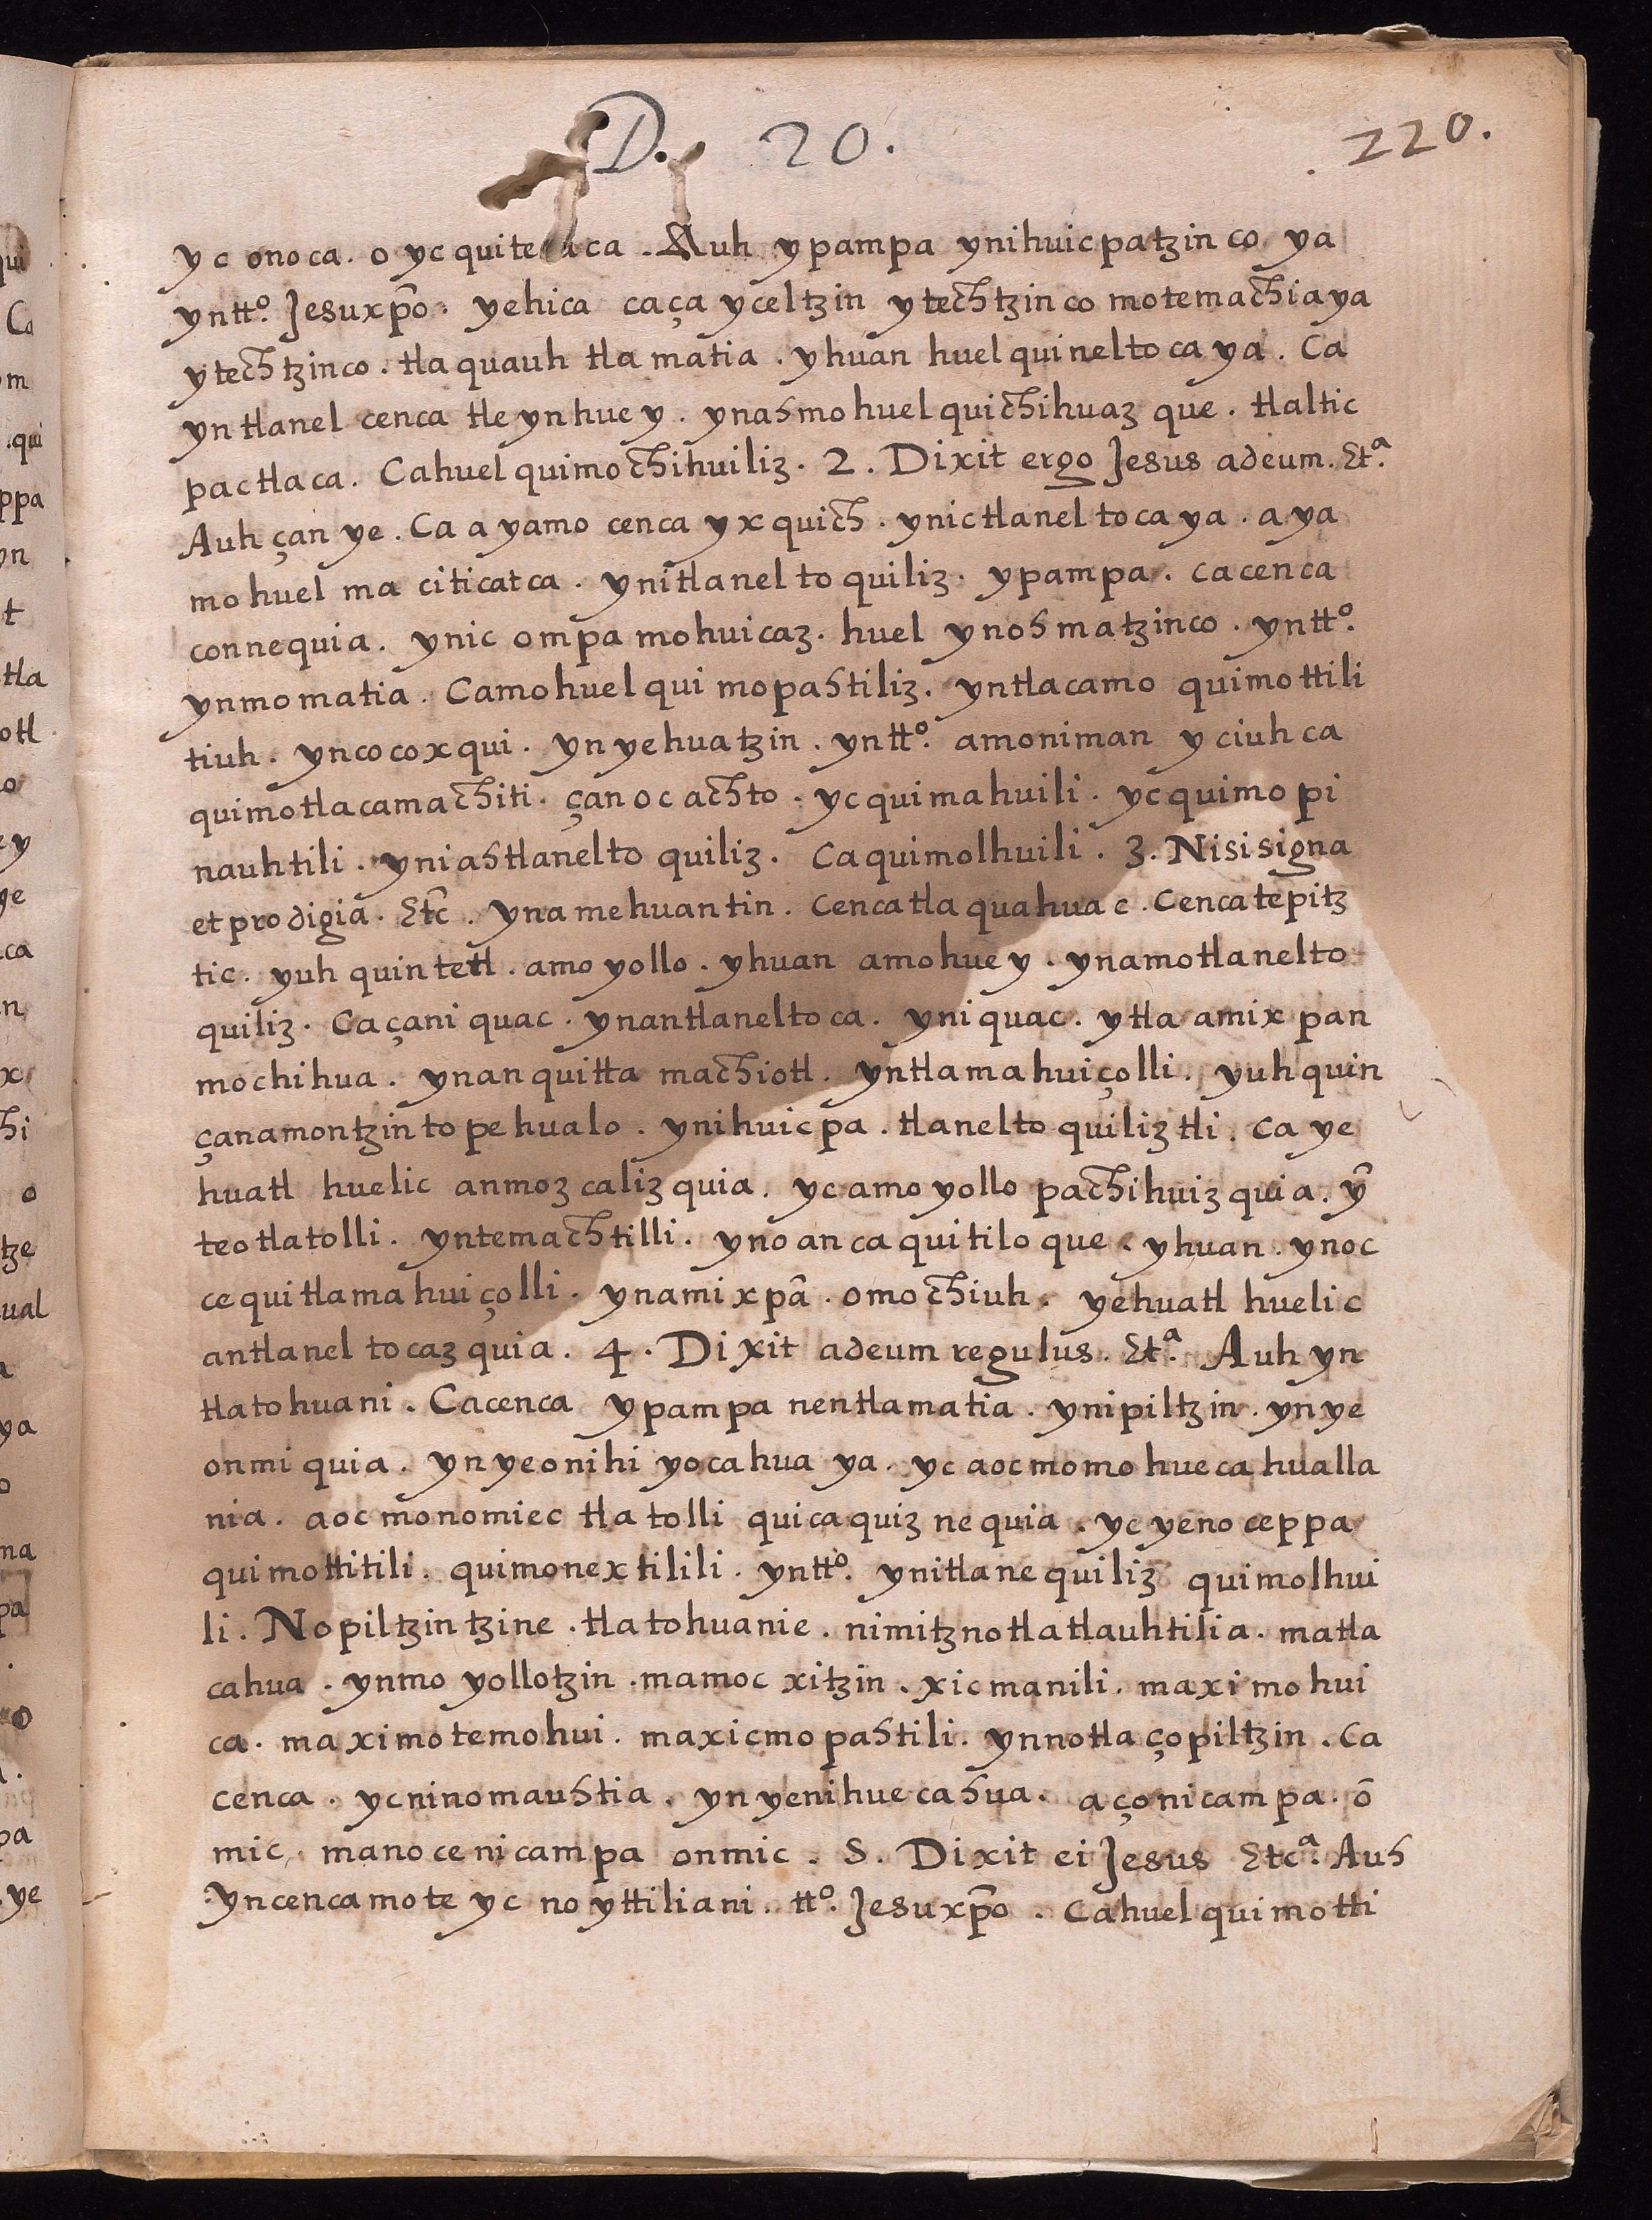 D. 20. 220.
yc onoca. o yc quite ca. Auh ypampa ynihuicpatzinco ya
yntto. Jesuxp̄o. yehica caça yceltzin ytechtzinco motemachiaya
ytechtzinco. tlaquauh tlamatia. yhuan huel quineltocaya. Ca
yntlanel cenca tleynhuey. ynahmohuel quichihuazque. tlaltic
pactlaca. Cahuelquimochihuiliz. 2. Dixit ergo Jesus adeum. Etª.
Auh çan ye. Ca ayamo cenca yxquich. ynictlaneltocaya. aya
mohuel maciticatca. ynitlaneltoquiliz. ypampa. cacenca
connequia. ynic ompa mohuicaz. huel ynohmatzinco. yntto.
ynmomatia. Camohuelquimopahtiliz. yntlacamo quimottili
tiuh. yncocoxqui. ynyehuatzin. yntto. amoniman yciuhca
quimotlacamachiti. çanoc achto. ycquimahuili. ycquimopi
nauhtili. yniahtlaneltoquiliz. Caquimolhuili. 3. Nisisigna
etprodigia. Etc̄. ynamehuantin. Cencatlaquahuac. Cencatepitz
tic. yuhquintetl. amoyollo. yhuan amohuey. ynamotlanelto
quiliz. Caçaniquac. ynantlaneltoca. yniquac. ytla amixpan
mochihua. ynanquitta machiotl. yntlamahuiçolli. yuhquin
çanamontzintopehualo. ynihuicpa. tlaneltoquiliztli. Ca ye
huatl huelic anmozcalizquia. yc amoyollo pachihuizquia. ȳ
teotlatolli. yntemachtilli. ynoancaquitiloque. yhuan. ynoc
cequitlamahuiçolli. ynamixpā. omochiuh. yehuatl huelic
antlaneltocazquia. 4. Dixit adeum regulus. Etª. Auh yn
tlatohuani. Cacenca ypampa nentlamatia. ynipiltzin. ynye
onmiquia. ynyeonihiyocahuaya. yc aocmomohuecahualla
nia. aocmonomiec tlatolli quicaquiznequia. yc yenoceppa
quimottitili. quimonextilili. yntto. ynitlanequiliz quimolhui
li. Nopiltzintzine. tlatohuanie. nimitznotlatlauhtilia. matla
cahua. ynmoyollotzin. mamocxitzin. xicmanili. maximohui
ca. maximotemohui. maxicmopahtili. ynnotlaçopiltzin. Ca
cenca. ycninomauhtia. ynyenihuecahua. açonicampa. ō
mic. manocenicampa onmic. 5. Dixit ei Jesus Etcª. Auh
yncencamoteycnoyttiliani. tto. Jesuxp̄o. Cahuelquimotti